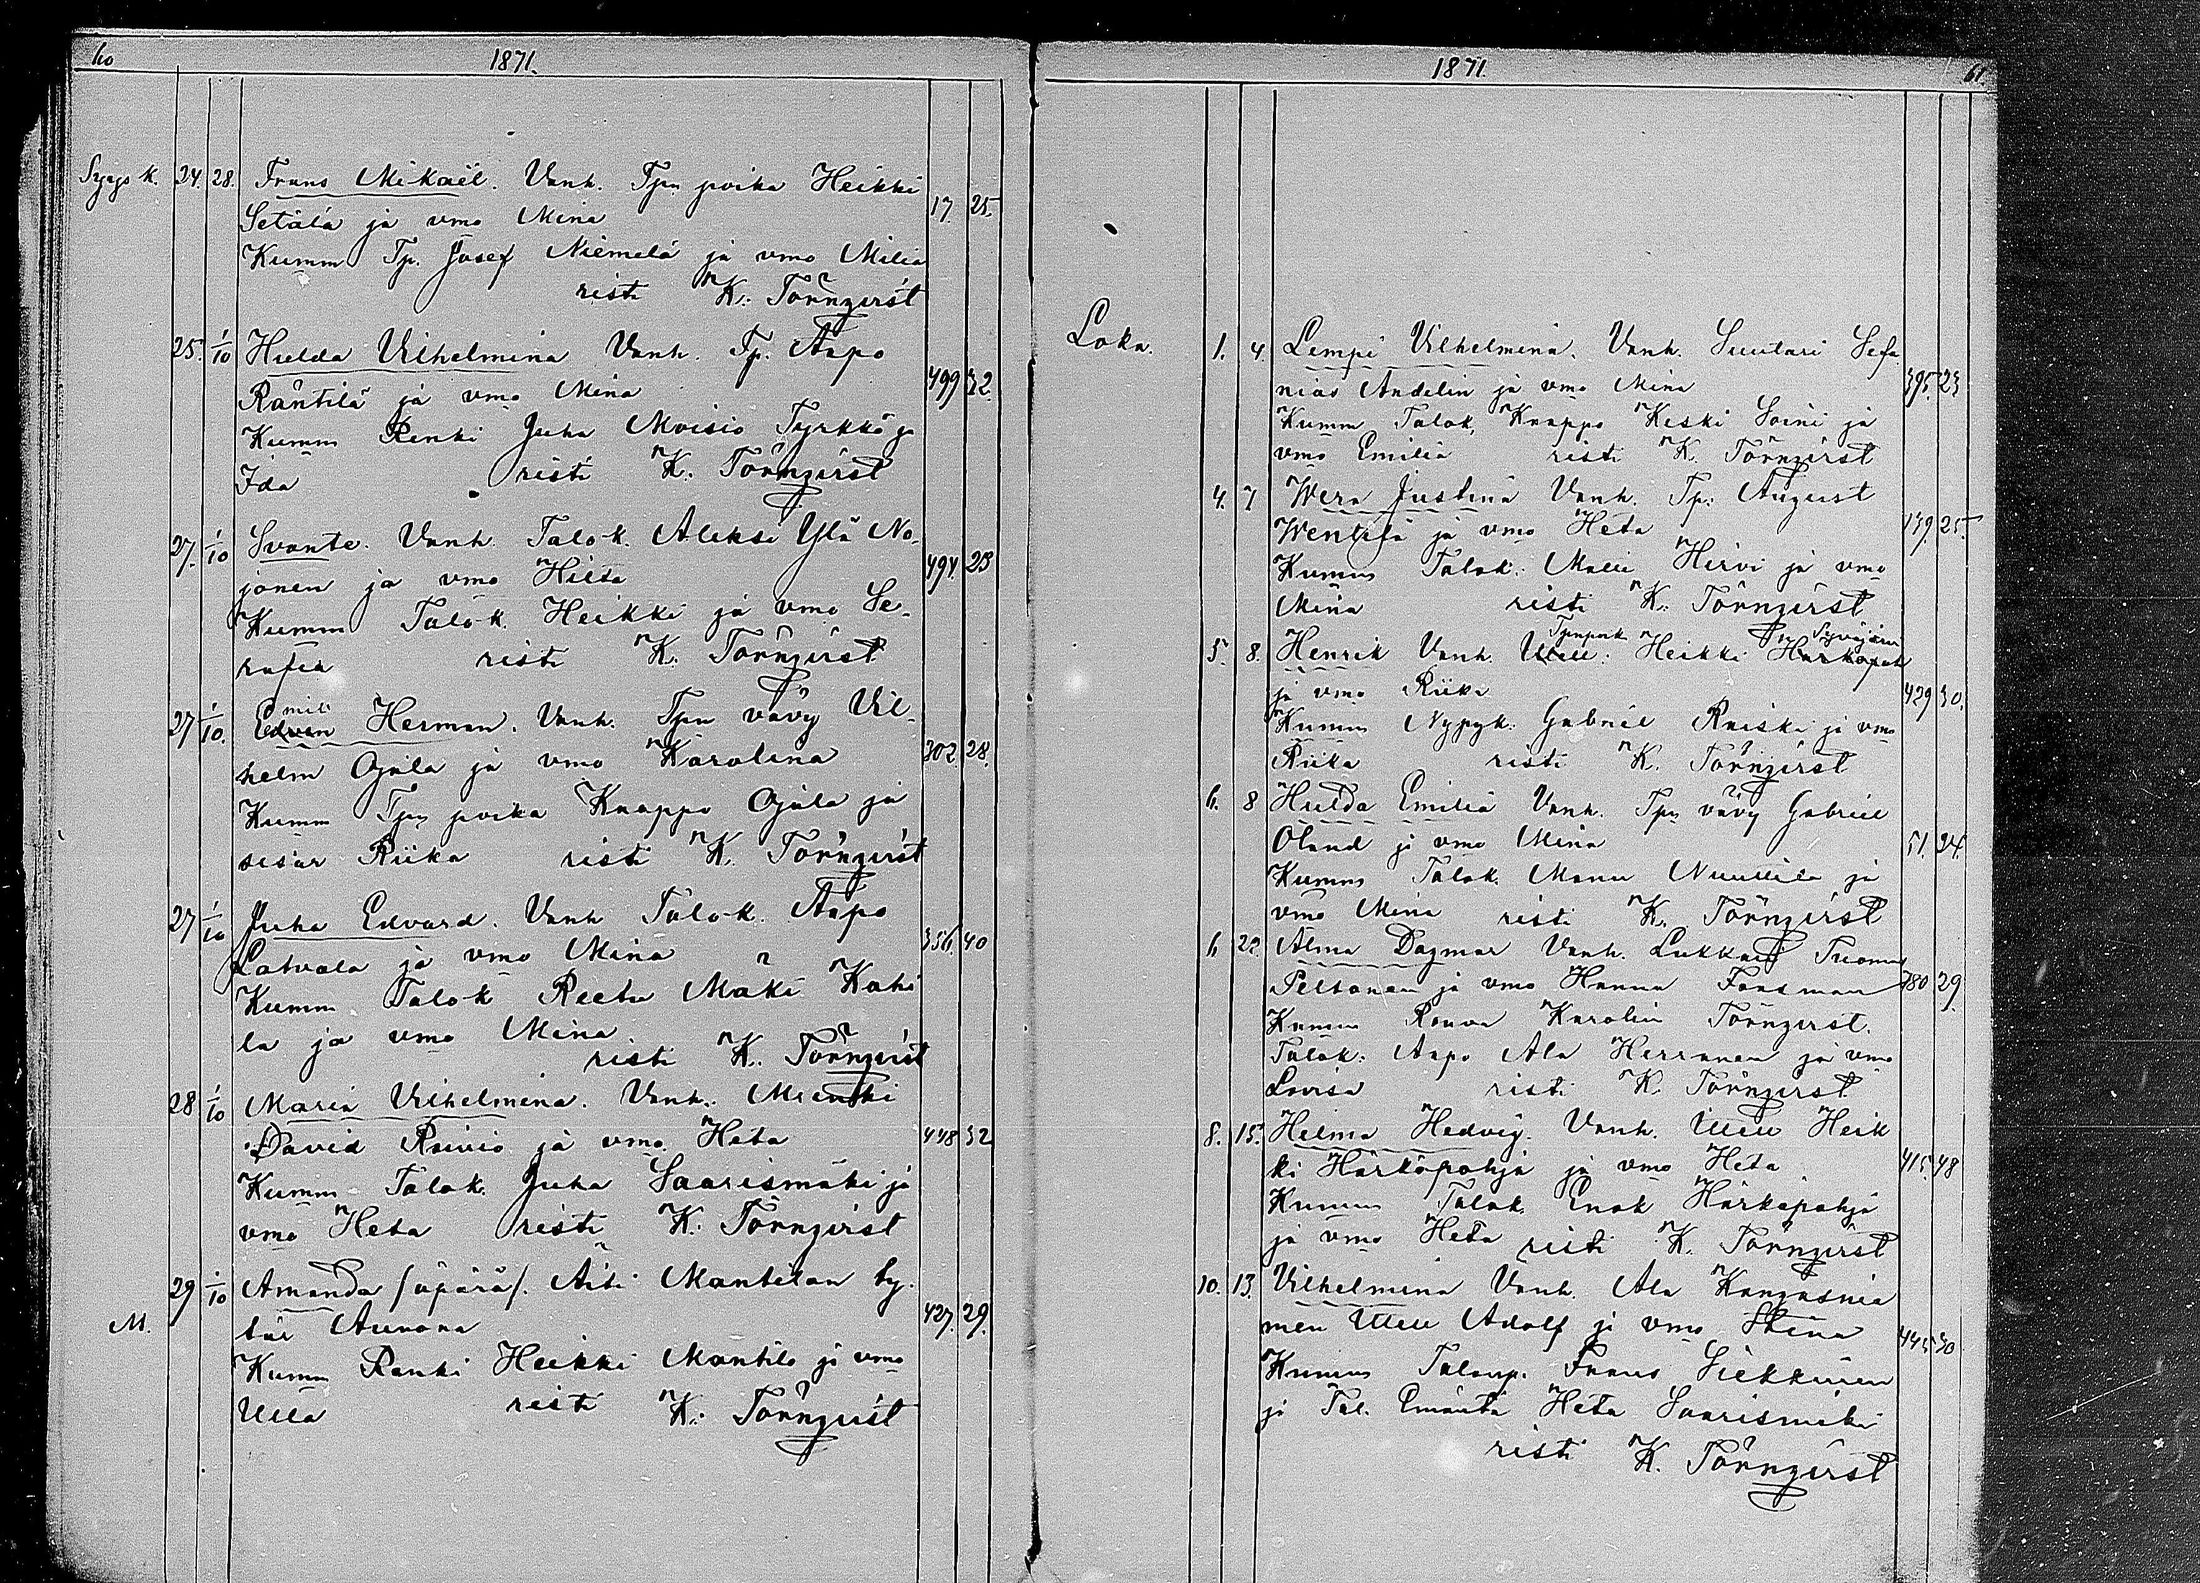 60 1871.
Syys k. 24. 28. Frans Mikaël. Vanh. Tpn poika Heikki
Setälä ja vmo Mina 17. 25.
Kumm Tp. Josef Niemelä ja vmo Milia
risti K. Törnqvist
25. 1/10 Hulda Vilhelmina Vanh. Tp. Aapo
Räntilä ja vmo Mina 499 32.
Kumm Renki Juha Moisio Tyrkkö ja
Ida risti K. Törnqvist
27. 1/10 Svante. Vanh. Talok. Aleksi Ylä No-
jonen ja vmo Hilta 494. 23
Kumm Talok. Heikki ja vmo Se-
rafia risti K. Törnqvist
27 1/10. Emil Herman. Vanh. Tpn vävy Vil-
helm Ojala ja vmo Karolina 302 28.
Kumm Tpn poika Knappo Ojala ja
sisar Riika risti K. Törnqvist
27 1/10 Juha Edvard. Vanh Talok. Aapo
Latvala ja vmo Mina 356. 40
Kumm Talok Reetu Mäki Kahi
la ja vmo Mina
risti K. Törnqvist
28 1/10 Maria Vilhelmina. Vanh. Muenki
David Raivio ja vmo Heta 448 32
Kumm Talok. Juha Saarismäki ja
vmo Heta risti K. Törnqvist
29 1/10 Amanda /äpärä/. Äiti Mantilan ty-
M. tär Aurora 427. 29.
Kumm Renki Heikki Mantila ja vmo
Ulla risti K. Törnqvist
1871. 61
Loka. 1. 4 Lempi Vilhelmina. Vanh. Suutari Sefa
nias Andelin ja vmo Mina 395. 23
Kumm Talok. Knappo Keski Soini ja
vmo Emilia risti K. Törnqvist
4. 7 Wera Justina Vanh. Tp. August
Wentelä ja vmo Heta 139. 25.
Kumm Talok. Matti Hirvi ja vmo
Mina risti K. Törnqvist
Tpnpoik Syväjärvi
5. 8. Henrik Vanh. Heikki Härkäpoh
ja vmo Riika 429 30.
Kumm Nypyk. Gabriel Raiski ja vmo
Riika risti K. Törnqvist
6. 8 Hulda Emilia Vanh. Tpn vävy Gabriel
Öland ja vmo Mina 51. 24.
Kumm Talok. Manu Nuuttila ja
vmo Mina risti K. Törnqvist
6 22 Alma Dagmar Vanh. Lukkari Tuomas
Peltonen ja vmo Hanna Forsman 780 29.
Kumm Rouva Karolin Törnqvist.
Talok. Aapo Ala Herranen ja vmo
Lovisa risti K. Törnqvist
8. 15. Helma Hedvig. Vanh. Heik
ki Härkäpohja ja vmo Heta 415. 48
Kumm Talok. Enok Härkäpohja
ja vmo Heta risti K. Törnqvist
10. 13. Vilhelmina Vanh. Ala Kangasnie
men Adolf ja vmo Stina 445. 30
Kumm Taloup. Frans Siekkinen
ja Tal. Emäntä Heta Saarismäki
risti K. Törnqvist